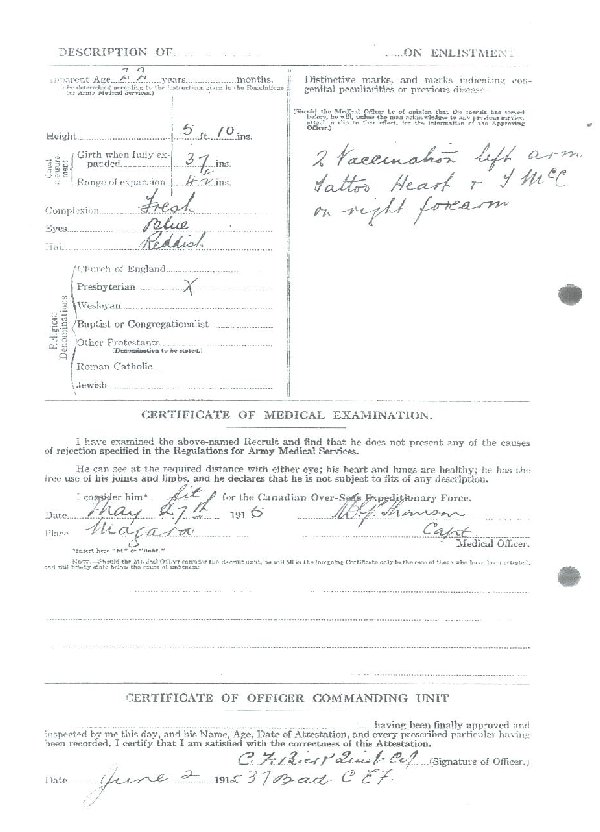 DESCRIPTION OF ON ENLISTMENT
Apparent Age 22 years months.
(To be determined according to the instructions given in the Regulations
for Army Medical Services.)
Height 5 ft. 10 ins.
Girth when fully ex-
panded 37 ins.
Range of expansion 4½ ins.
Complexion Fresh
Eyes Blue
Hair Reddish
Religious
Denominations
Church of England
Presbyterian X
Wesleyan
Baptist or Congregationalist
Other Protestants
(Denomination to be stated.)
Roman Catholic
Jewish
Distinctive marks, and marks indicating con-
genital peculiarities or previous disease.
(Should the Medical Officer be of opinion that the recruit has served
before, he will, unless the man acknowledges to any previous service,
attach a slip to that effect, for the information of the Approving
Officer.)
2 Vaccination left arm
Tattos Heart + J McC
on right forearm
CERTIFICATE OF MEDICAL EXAMINATION.
I have examined the above-named Recruit and find that he does not present any of the causes
of rejection specified in the Regulations for Army Medical Services.
He can see at the required distance with either eye; his heart and lungs are healthy; he has the
free use of his joints and limbs, and he declares that he is not subject to fits of any description.
I consider him* fit for the Canadian Over-Seas Expeditionary Force.
Date May 27th 1915
Place Niagara Capt
Medical Officer.
*Insert here "fit" or "unfit."
NOTE.—Should the Medical Officer consider the Recruit unfit, he will fill in the foregoing Certificate only in the case of those who have been attested,
and will briefly state below the cause of unfitness:
CERTIFICATE OF OFFICER COMMANDING UNIT
having been finally approved and
inspected by me this day, and his Name, Age, Date of Attestation, and every prescribed particular having
been recorded, I certify that I am satisfied with the correctness of this Attestation.
(Signature of Officer.)
Date June 2 1915 37 C E F.